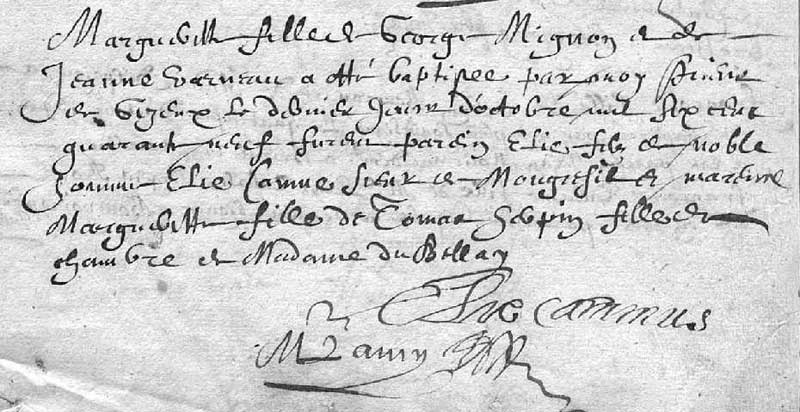 Margueritte fille de George Mignon et de
Jeanne varneau a esté baptisee par moy prieur
de Gizeux le dernier jour d'octobre mil six cent
quarante neuf furent parein Elie filz de noble
homme Elie Camus sieur de et mareine
Margueritte fille de Tomas Sepin fille de
chambre de Madame du Bellay
Elie Cammus